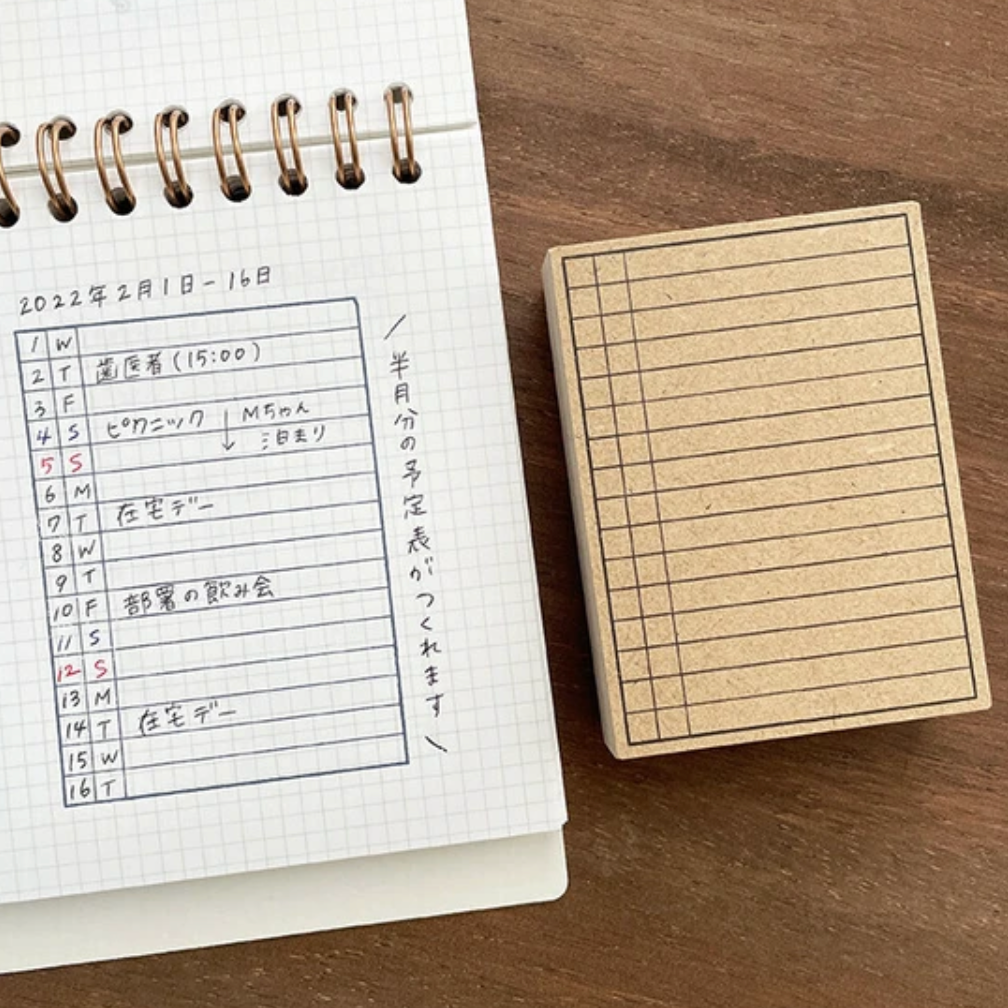 2022年2月1日-16日
1 W
2 T 歯医者(15:00)
3 F
4 S ピクニック ↓ Mちゃん
5 S 泊まり
6 M
7 T 在宅デー
8 W
9 T
10 F 部署の飲み会
11 S
12 S
13 M
14 T 在宅デー
15 W
16 T
\半月分の予定表がつくれます/